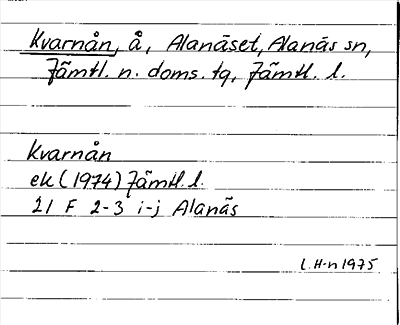 Kvarnån, å, Alanäset, Alanäs sn,
Jämtl. n. doms. tg, Jämtl. l.
Kvarnån
ek (1974) Jämtl. l.
21 F 2-3 i-j Alanäs
L. H-n 1975